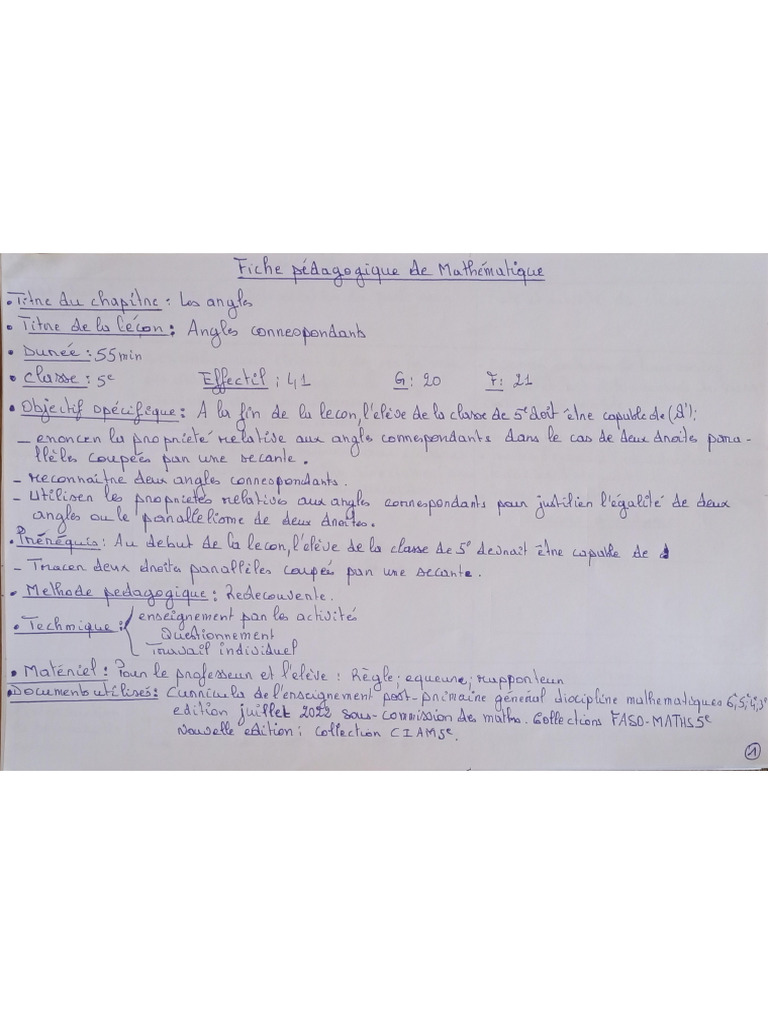 Fiche pédagogique de Mathématique
• Titre du chapitre : Les angles
• Titre de la leçon : Angles correspondants
• Durée : 55min
• Classe : 5e Effectif : 41 G : 20 F : 21
• Objectif spécifique : A la fin de la lecon, l'élève de la classe de 5e doit être capable de (d') :
– enoncer la proprieté relative aux angles correspondants dans le cas de deux droites para-
llèles coupées par une secante.
– reconnaitre deux angles correspondants.
– Utiliser les proprietés relatives aux angles correspondants pour justifier l'égalité de deux
angles ou le parallelisme de deux droites.
• Prérequis : Au debut de la lecon, l'elève de la classe de 5e devrait être capable de
– Tracer deux droites parallèles coupés par une secante.
• Methode pedagogique : Redecouverte.
• Technique : enseignement par les activités
Questionnement
Travail individuel
• Matériel : Pour le professeur et l'elève : Règle ; equerre ; rapporteur
• Documents utilisés : Curricula de l'enseignement post-primaire général discipline mathematiques 6e, 5e, 4e, 3e
edition juillet 2022 sous-commission des maths. Collections FASO-MATHS 5e
Nouvelle edition ; collection CIAM 5e.
1